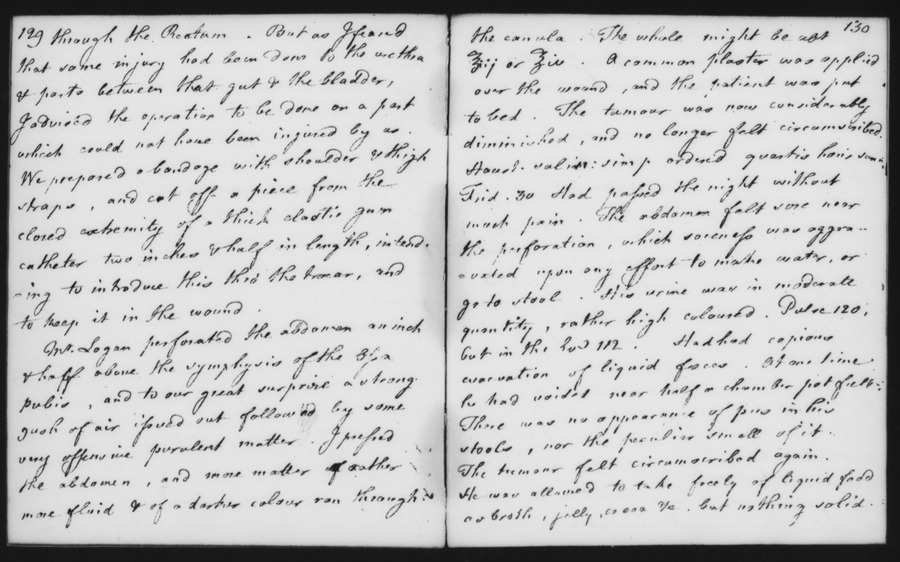 129 through the Rectum . But as I feared
that some injury had been done to the urethra
& parts between that gut & the bladder,
I advised the operation to be done on a part
which could not have been injured by us .
We prepared a bandage with shoulder & thigh
straps , and cut off a piece from the
closed extremity of a thick elastic gum
catheter two inches & half in length, intend-
-ing to introduce this thro' the trocar, and
to keep it in the wound .
Mr. Logan perforated the abdomen an inch
& half above the symphysis of the Ossa
pubis , and to our great surprize a strong
gush of air issued out followed by some
very offensive purulent matter . I pressed
the abdomen , and more matter rather
more fluid & of a darker colour ran through
130
the canula . The whole might be abt
℥ij or ℥iv . A common plaster was applied
over the wound , and the patient was put
to bed . The tumour was now considerably
diminished , and no longer felt circumscribed.
Haust. salin: simp ordered quartis horis
Frid. 30 Had passed the night without
much pain . The abdomen felt sore near
the perforation , which soreness was aggra-
-vated upon any effort to make water, or
go to stool . His urine was in moderate
quantity , rather high coloured . Pulse 120,
but in the 112 . Had had copious
evacuation of liquid fæces . At one time
he had voided near half a chamber pot full.
There was no appearance of pus in his
stools , nor the peculiar smell of it .
The tumour felt circumscribed again .
He was allowed to take freely of liquid food
as broth , jelly , cocoa &c . but nothing solid .